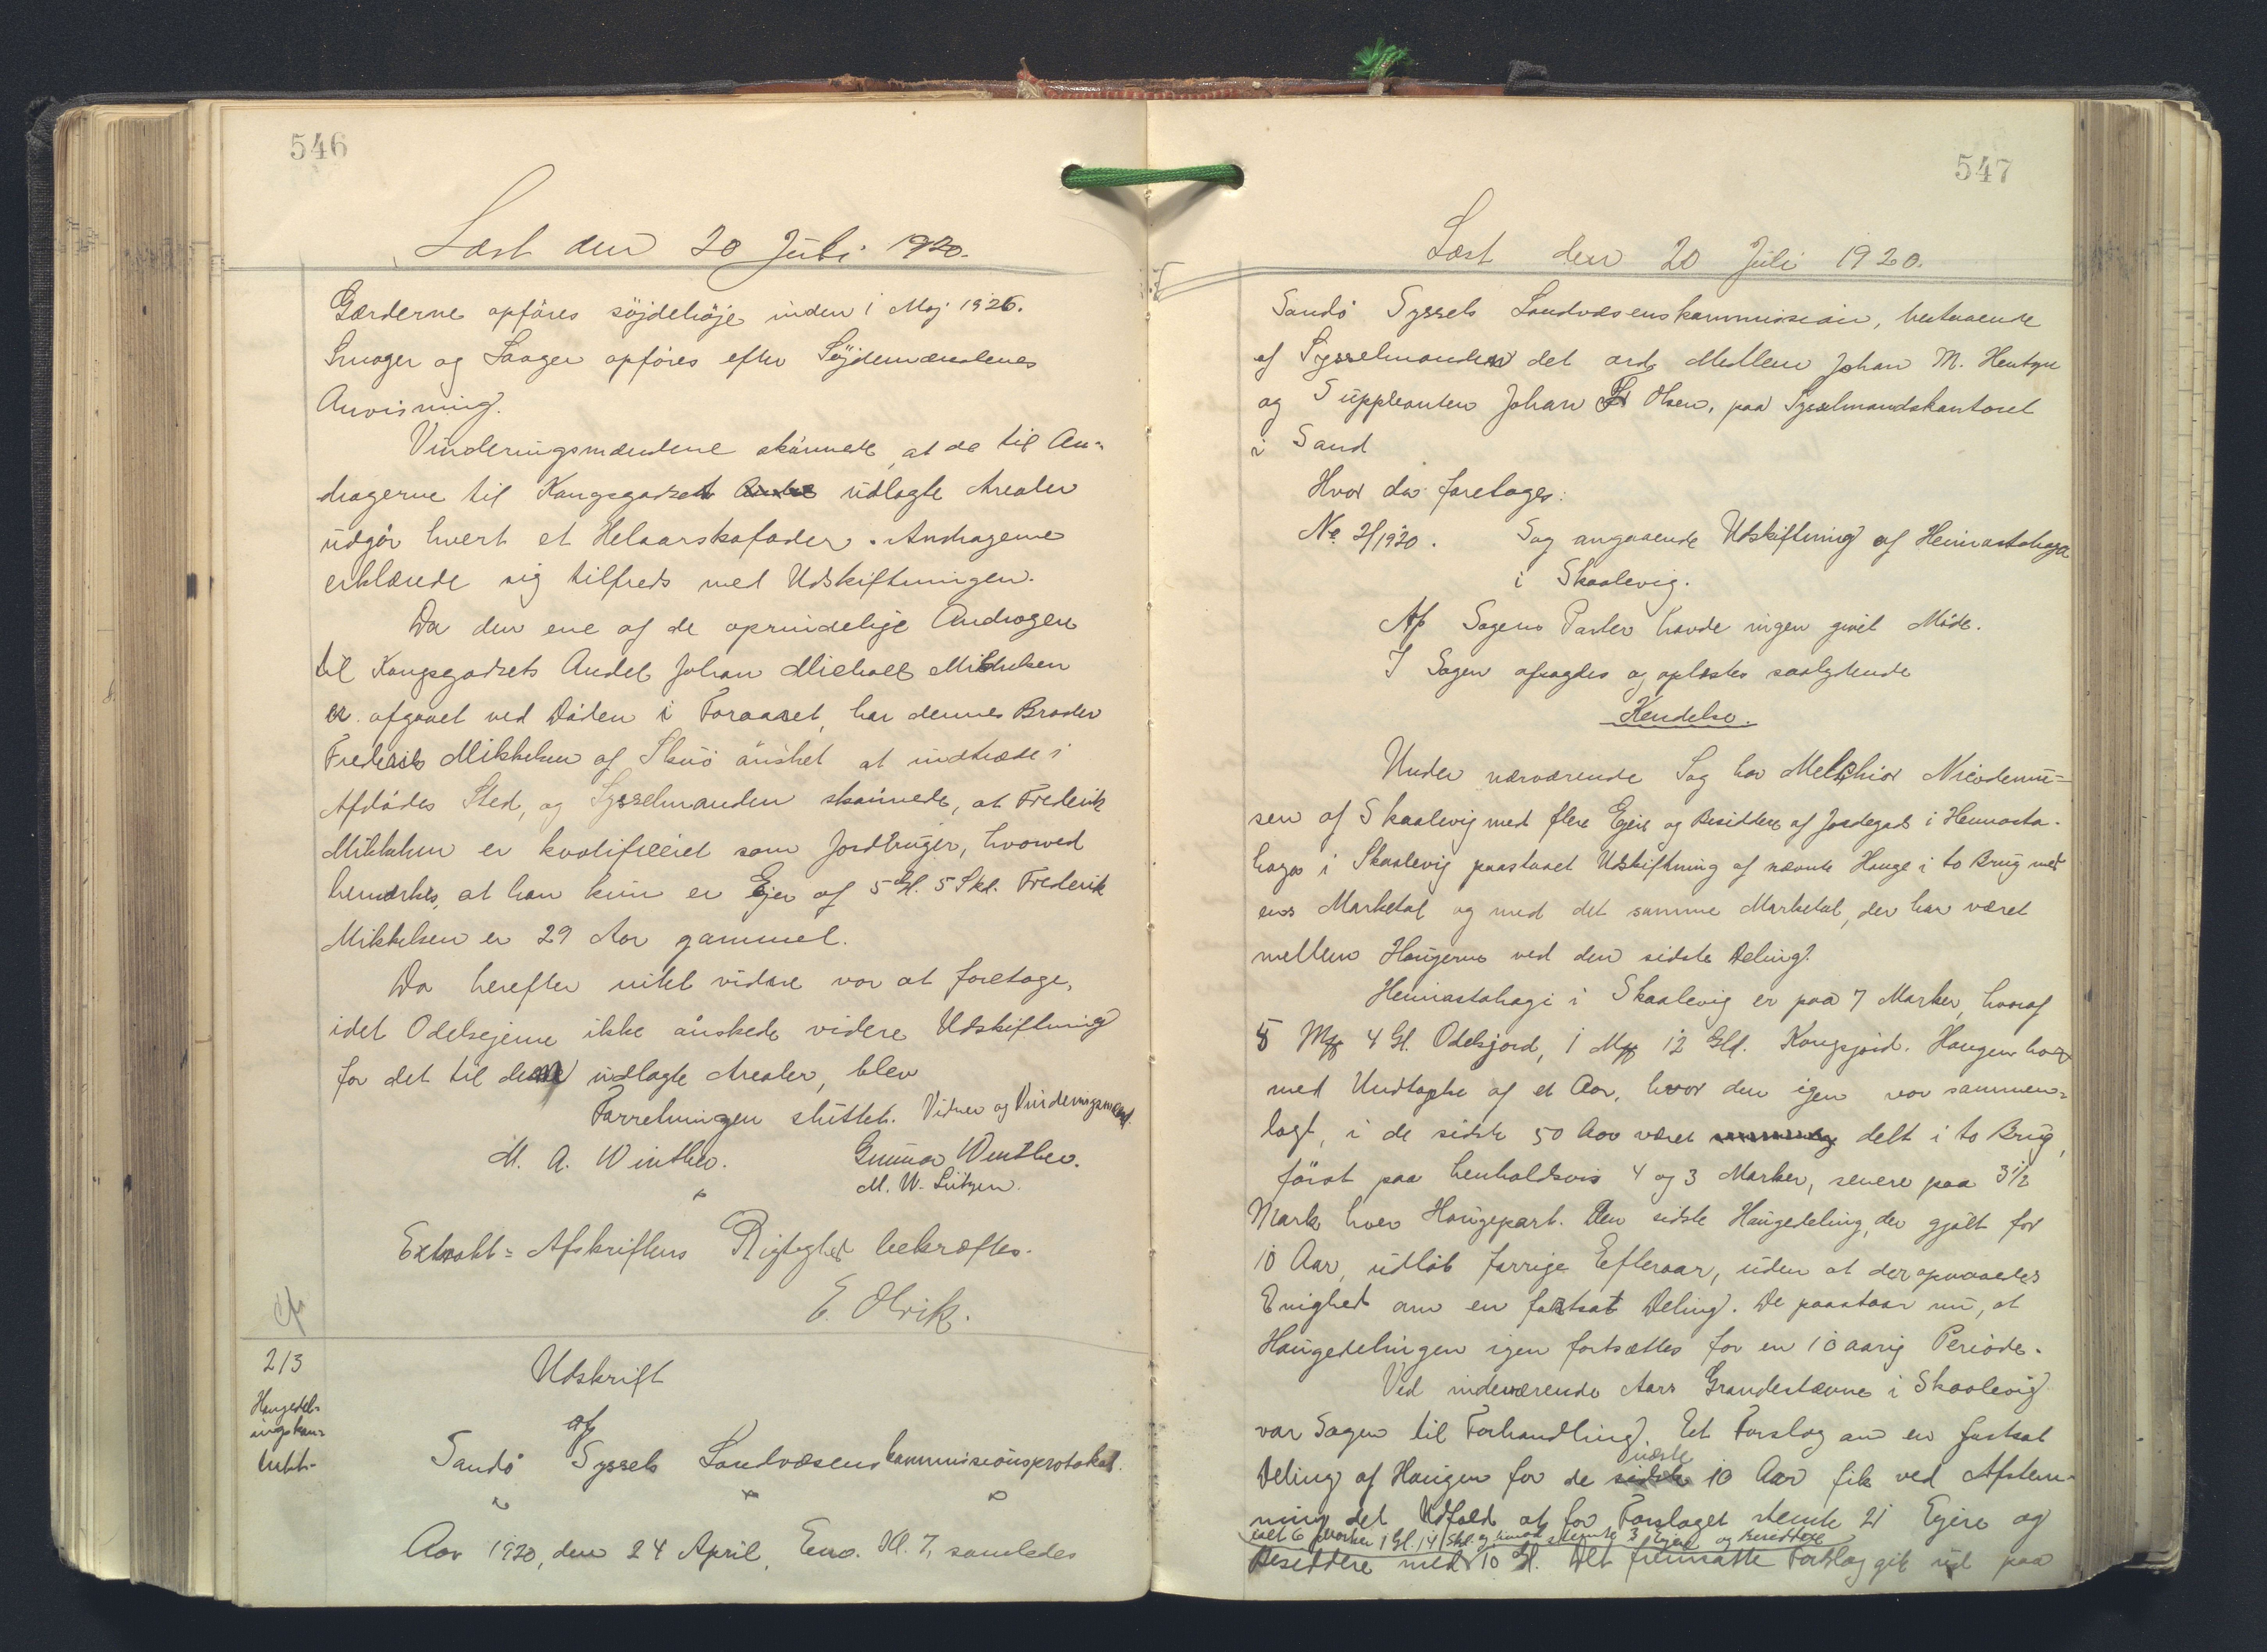 546
Læst den 20 Juli 1920.
Gærderne opføres søjdehøje inden 1 Maj 1926.
Smoger og Laager opføres efter Söjdemændenes
Anvisning.
Vurderingsmændene skönnede, at de til An-
dragerne til Kongsgodset udlagte Arealer
udgør hvert et Helaarskofoder. Andragerne
erklærede sig tilfreds med Udskiftningen.
Da den ene af de oprindelige Andragere
til Kongsgodsets Andel Johan Michael Mikkelsen
er afgaaet ved Døden i Foraaret, har dennes Broder
Frederik Mikkelsen af Skuö önsket at indtræde i
Afdødes Sted, og Sysselmanden skönnede, at Frederik
Mikkelsen er kvalificeret som Jordbruger, hvorved
bemærkes, at han kun er Ejer af 5 Gl. 5 Skl. Frederik
Mikkelsen er 29 Aar gammel.
Da herefter intet videre var at foretage,
idet Odelsejerne ikke önskede videre Udskiftning
for det til dem udlagte Arealer, blev
Forretningen sluttet. Vidner og Vurderingsmænd.
M. A. Winther. Gunnar Winther.
M. W. Lützen.
Extrakt-Afskriftens Rigtighed bekræftes.
E. Olrik.
213
Haugedel-
ingskon-
trakt.
Udskrift
af
Sandö Syssels Landvæsenskommissionsprotokol.
Aar 1920, den 24 April, Em. Kl. 7, samledes
547
Læst den 20 Juli 1920.
Sandö Syssels Landvæsenskommission, bestaaende
af Sysselmanden det ord. Medlem Johan M. Hentze
og Suppleanten Johan Fr Olsen, paa Sysselmandskontoret
i Sand
Hvor da foretoges:
No 2/1920. Sag angaaende Udskiftning af Heimastahaga
i Skaalevig.
Af Sagens Parter havde ingen givet Möde.
I Sagen afsagdes og oplæstes saalydende
Kendelse.
Under nærværende Sag har Melchior Nicodemu-
sen af Skaalevig med flere Ejere og Besiddere af Jordegods i Heimasta-
haga i Skaalevig paastaaet Udskiftning af nævnte Hauge i to Brug med
ens Marketal og med det samme Marketal, der har været
mellem Haugerne ved den sidste Deling.
Heimastahagi i Skaalevig er paa 7 Marker, hvoraf
5 Mk 4 Gl. Odelsjord, 1 Mk 12 Gl. Kongsjord. Haugen har
med Undtagelse af et Aar, hvor den igen var sammen-
lagt, i de sidste 50 Aar været delt i to Brug,
först paa henholdsvis 4 og 3 Marker, senere paa 3½
Mark hver Haugepart. Den sidste Haugedeling, der gjaldt for
10 Aar, udløb forrige Efteraar, uden at der opnaaedes
Enighed om en fortsat Deling. De paastaar nu, at
Haugedelingen igen fortsættes for en 10 aarig Periode.
Ved indeværende Aars Grandestævne i Skaalevig
var Sagen til Forhandling. Et Forslag om en fortsat
Deling af Haugen for de sidste næste 10 Aar fik ved Afstem-
ning det Udfald at for Forslaget stemte 21 Ejere og
ialt 6 Marker 1 Gl. 14 Skl. og imod stemte 3 Ejere og Besiddere
Besiddere med 10 Gl. Det fremsatte Forslag gik ud paa